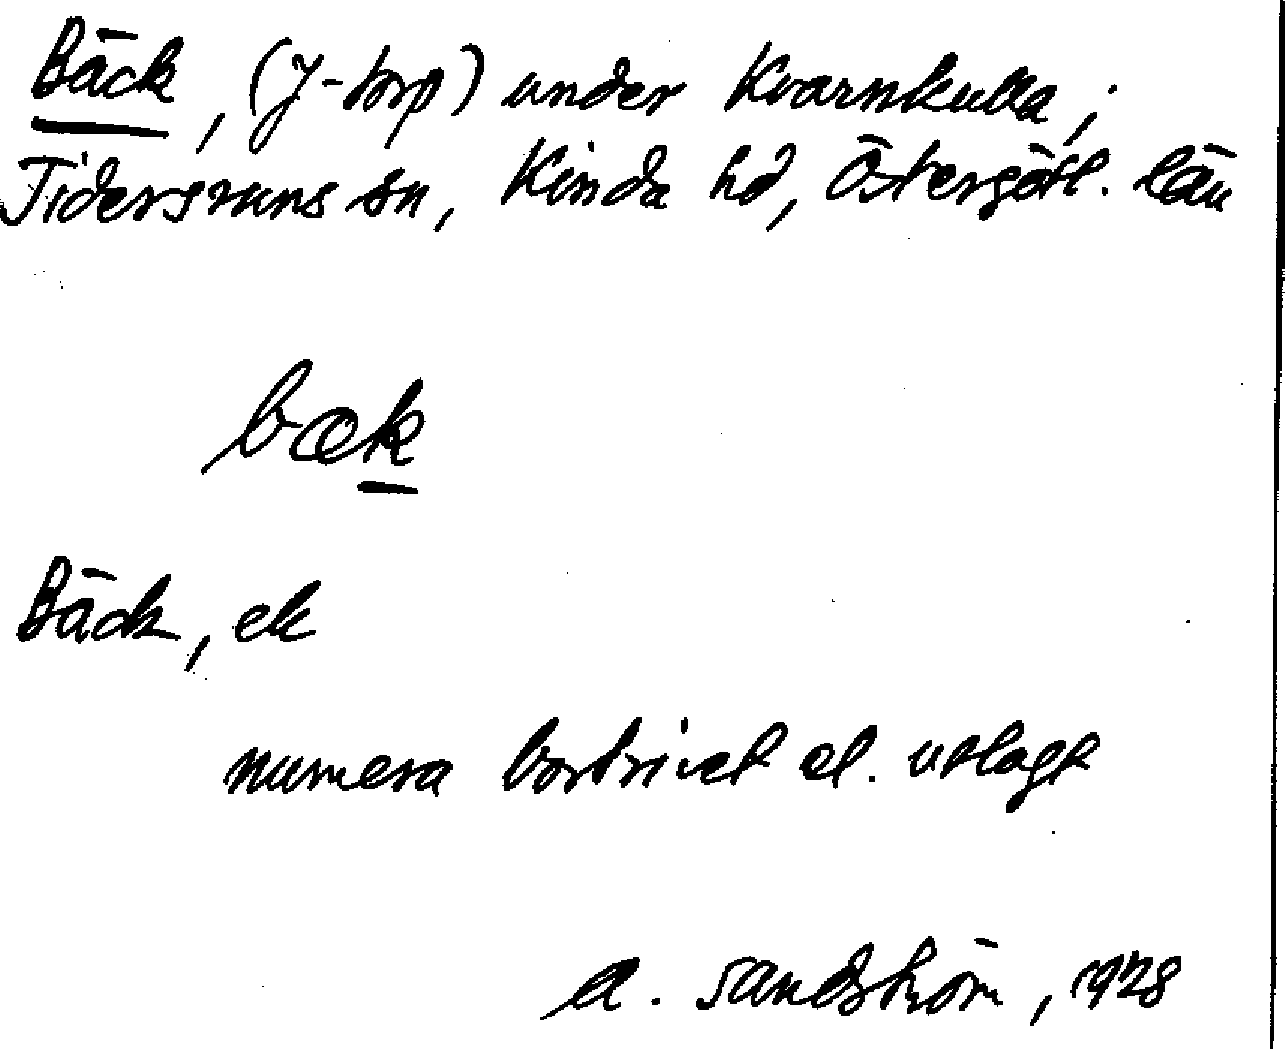 Bäck, (J-torp) under Kvarnkulla,
Tidersrums sn, Kinda hd, Östergötl. län
bæk
Bäck, ek
numera bortrivet el. utlagt
A. Sandström, 1928